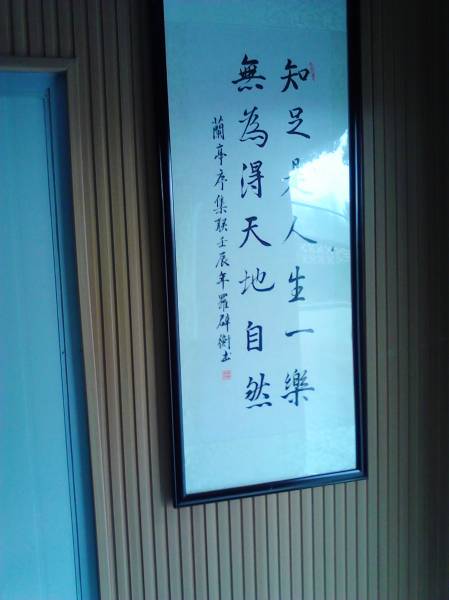 知足是人生一樂
無為得天地自然
蘭亭序集联壬辰年羅辟衡书